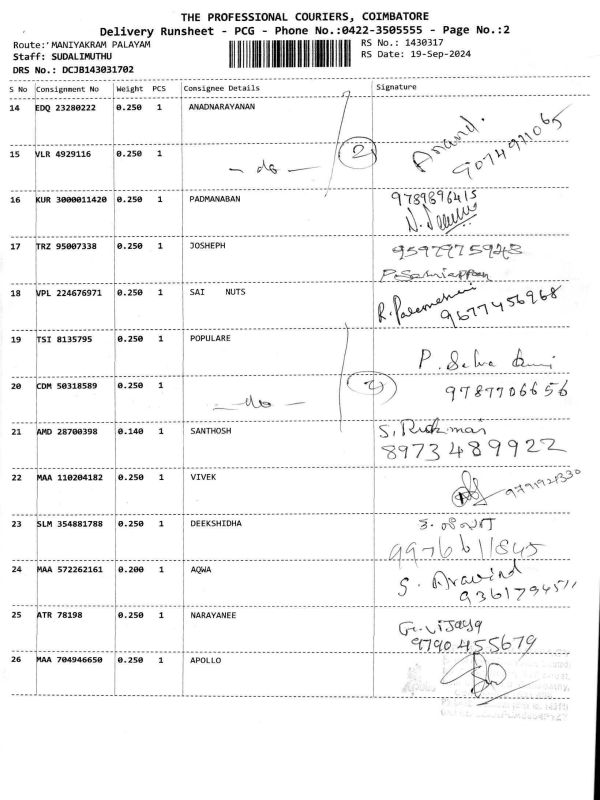 THE PROFESSIONAL COURIERS, COIMBATORE
Delivery Runsheet - PCG - Phone No.:0422-3505555 - Page No.:2
Route: MANIYAKRAM PALAYAM
RS No.: 1430317
Staff: SUDALIMUTHU
RS Date: 19-Sep-2024
DRS No.: DCJB143031702
S No Consignment No Weight PCS Consignee Details Signature
14 EDQ 23280222 0.250 1 ANADNARAYANAN Anand.
9074971065
15 VLR 4929116 0.250 1 - do - 2
16 KUR 3000011420 0.250 1 PADMANABAN 9789896415
17 TRZ 95007338 0.250 1 JOSHEPH 9597975943
18 VPL 224676971 0.250 1 SAI NUTS R.
9677456968
19 TSI 8135795 0.250 1 POPULARE P. Selva
20 CDM 50318589 0.250 1 - do - 2 9787706656
21 AMD 28700398 0.140 1 SANTHOSH S. Rukmai
8973489922
22 MAA 110204182 0.250 1 VIVEK 9791921330
23 SLM 354881788 0.250 1 DEEKSHIDHA
9976611845
24 MAA 572262161 0.200 1 AQWA S. Aravind
25 ATR 78198 0.250 1 NARAYANEE G. Vijaya
9790455679
26 MAA 704946650 0.250 1 APOLLO